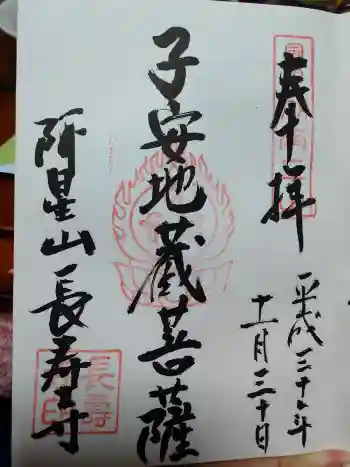 奉拝
平成三十年
十一月三十日
子安地蔵菩薩
阿星山長寿寺
長壽
印